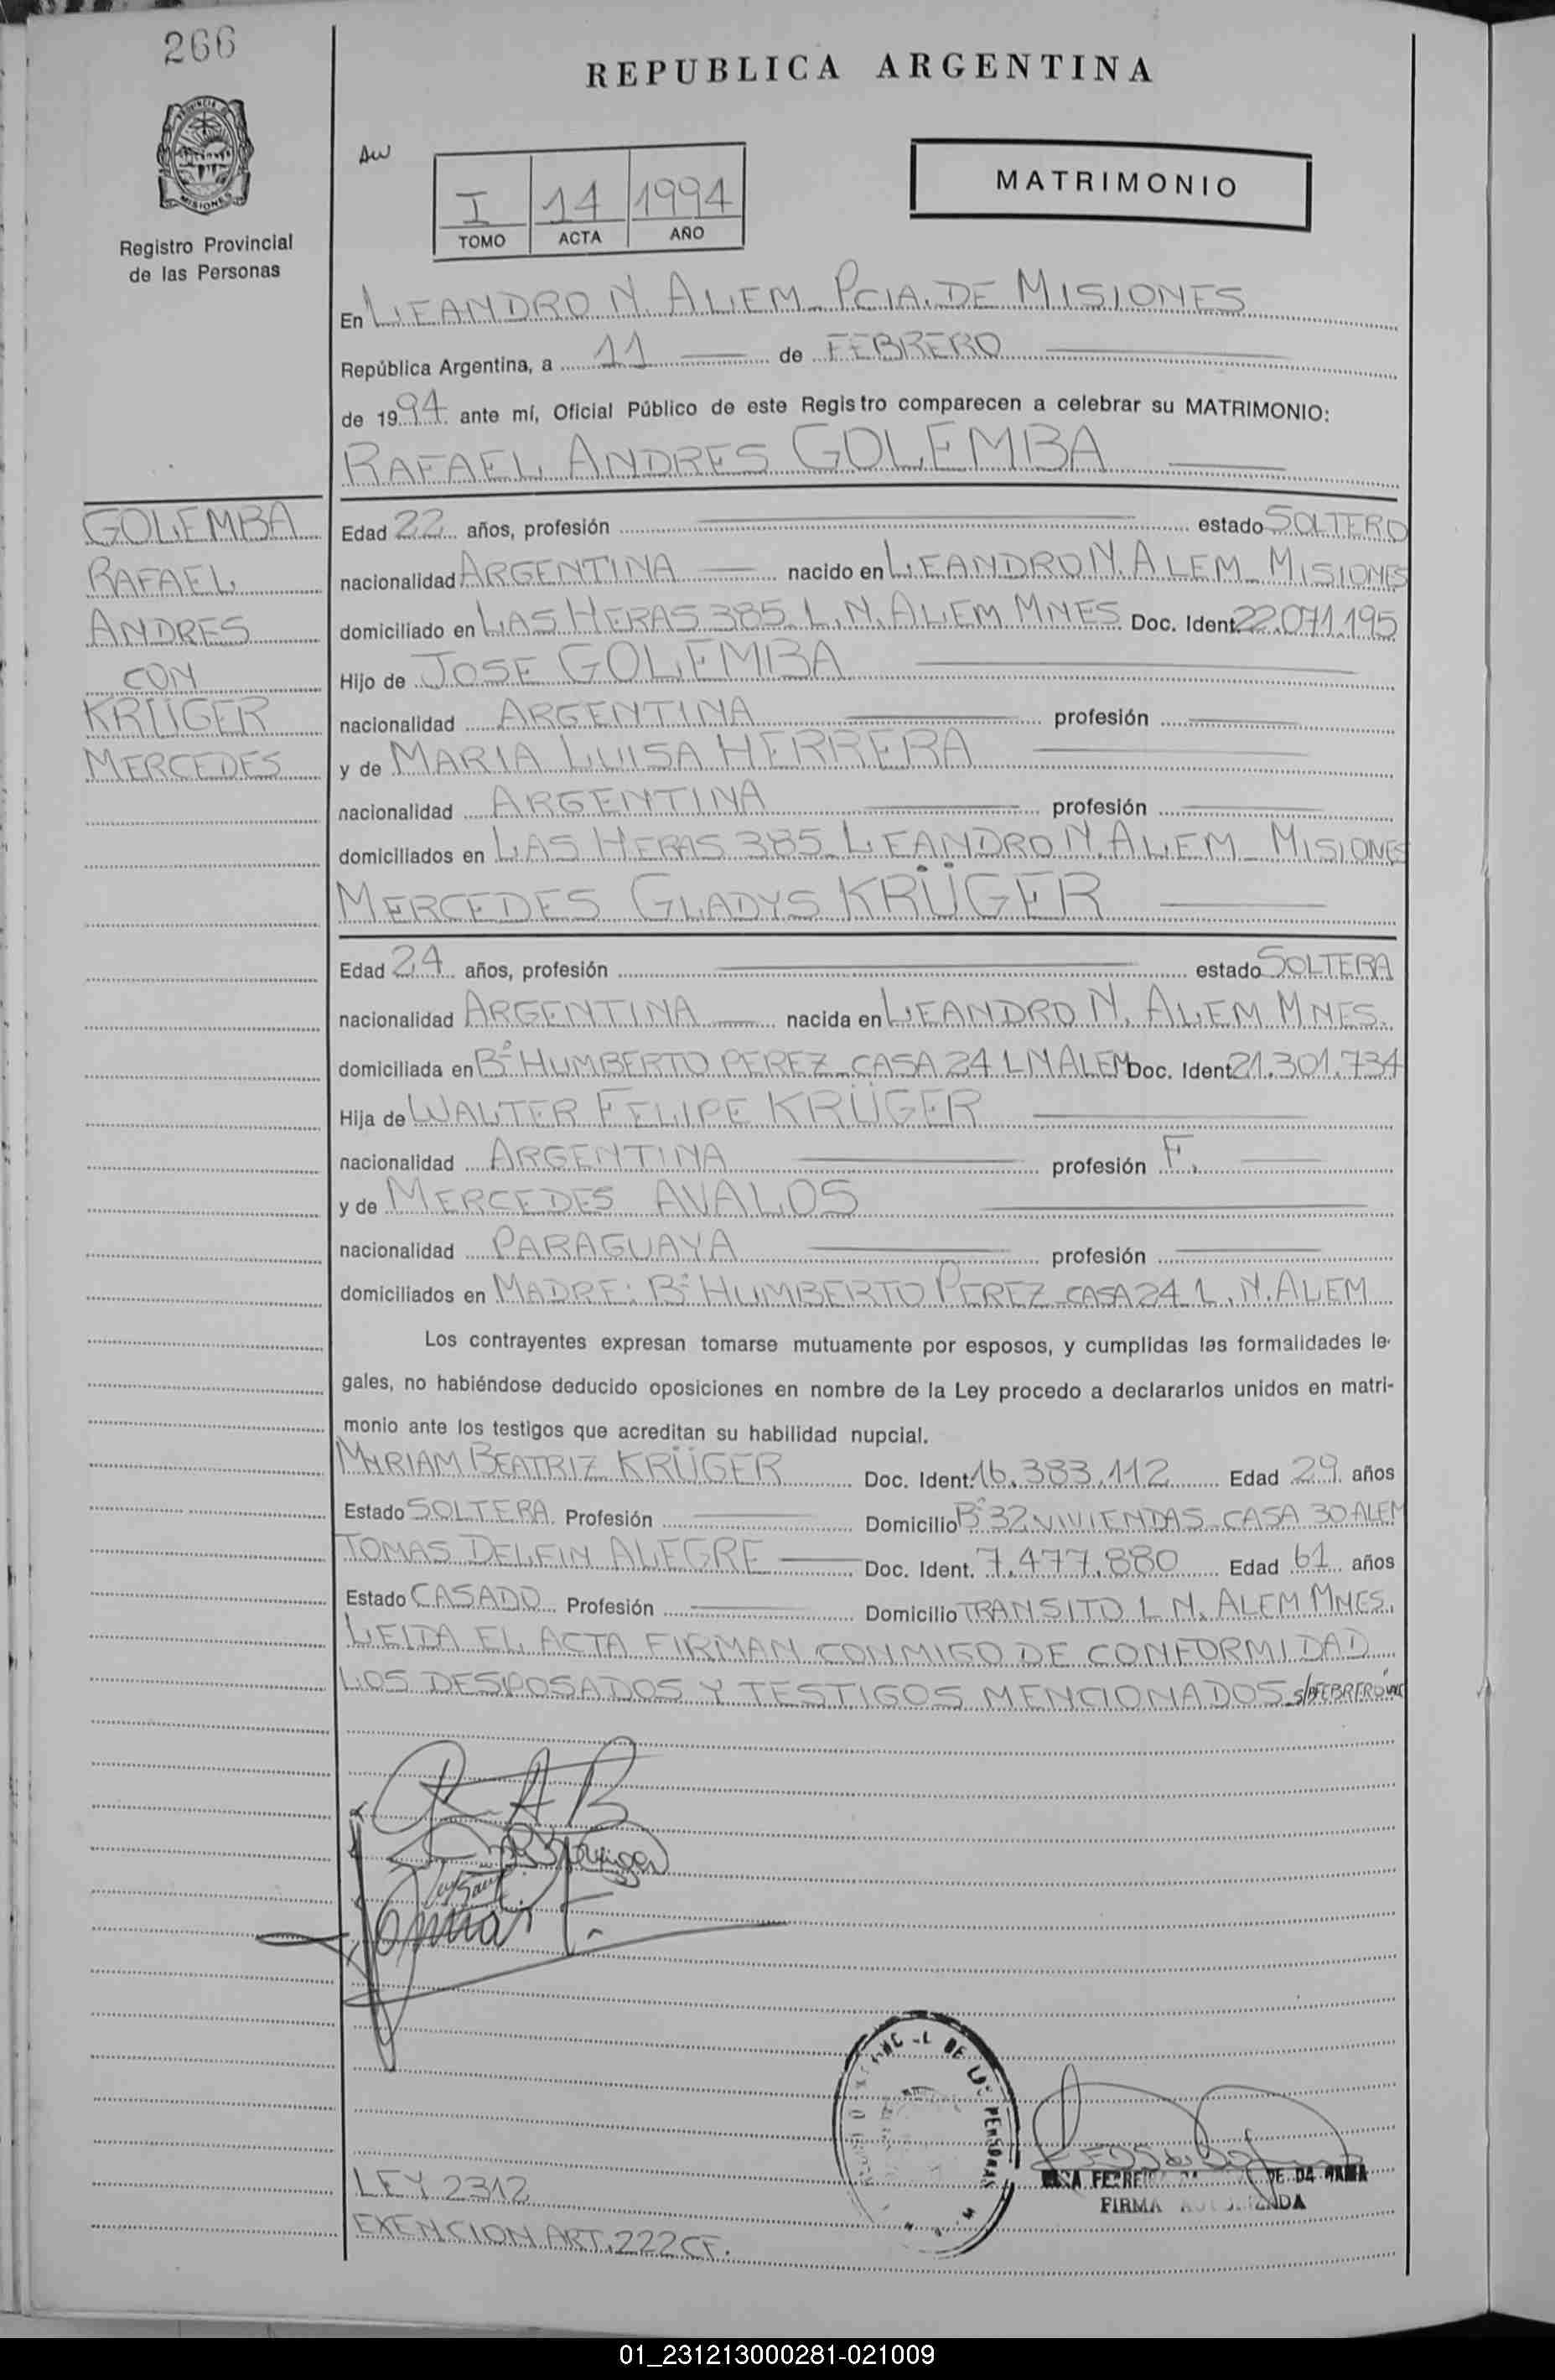 266
REPUBLICA ARGENTINA
PROVINCIA DE
MISIONES
Registro Provincial
de las Personas
AW
I 14 1994
TOMO ACTA AÑO
MATRIMONIO
En LEANDRO N. ALEM_ PCIA. DE MISIONES
República Argentina, a 11 de FEBRERO
de 1994 ante mí, Oficial Público de este Registro comparecen a celebrar su MATRIMONIO:
RAFAEL ANDRES GOLEMBA
GOLEMBA
RAFAEL
ANDRES
CON
KRÜGER
MERCEDES
Edad 22 años, profesión estado SOLTERO
nacionalidad ARGENTINA nacido en LEANDRO N. ALEM_ MISIONES
domiciliado en LAS HERAS 385_ L. N. ALEM MNES Doc. Ident. 22.071.195
Hijo de JOSE GOLEMBA
nacionalidad ARGENTINA profesión
y de MARIA LUISA HERRERA
nacionalidad ARGENTINA profesión
domiciliados en LAS HERAS 385_ LEANDRO N. ALEM_ MISIONES
MERCEDES GLADYS KRÜGER
Edad 24 años, profesión estado SOLTERA
nacionalidad ARGENTINA nacida en LEANDRO N. ALEM MNES.
domiciliada en Bº HUMBERTO PEREZ_ CASA 24 L N ALEM Doc. Ident. 21.301.734
Hija de WALTER FELIPE KRÜGER
nacionalidad ARGENTINA profesión F.
y de MERCEDES AVALOS
nacionalidad PARAGUAYA profesión
domiciliados en MADRE: Bº HUMBERTO PEREZ_ CASA 24_ L. N. ALEM
Los contrayentes expresan tomarse mutuamente por esposos, y cumplidas las formalidades le-
gales, no habiéndose deducido oposiciones en nombre de la Ley procedo a declararlos unidos en matri-
monio ante los testigos que acreditan su habilidad nupcial.
MYRIAM BEATRIZ KRÜGER Doc. Ident. 16.383.112 Edad 29 años
Estado SOLTERA Profesión Domicilio Bº 32 VIVIENDAS_ CASA 30 ALEM
TOMAS DELFIN ALEGRE Doc. Ident. 7.477.880 Edad 61 años
Estado CASADO Profesión Domicilio TRANSITO L N. ALEM MNES.
LEIDA EL ACTA FIRMAN CONMIGO DE CONFORMIDAD
LOS DESPOSADOS Y TESTIGOS MENCIONADOS_ S/R FEBRERO
DE LAS PERSONAS
DE DA GAMA
FIRMA AUTORIZADA
LEY 2312
EXENCION ART. 222 CF.
01_231213000281-021009